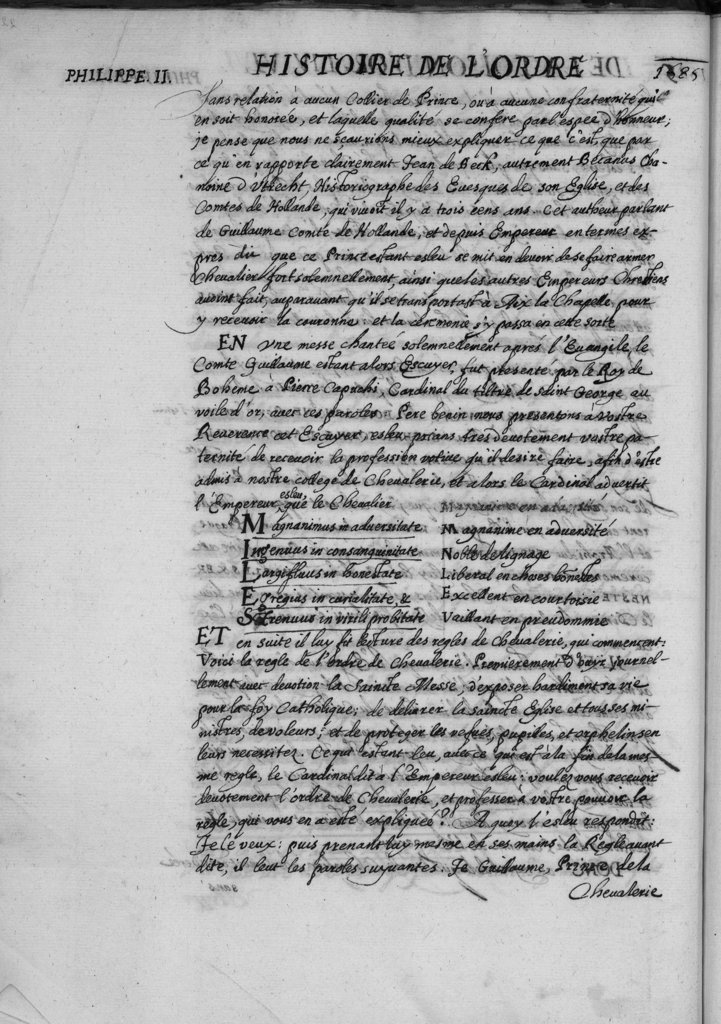 PHILIPPE II. HISTOIRE DE L'ORDRE 1585
sans relation à aucun Collier de Prince, ou à aucune confraternité qui
en soit honorée, et laquelle qualité se confere par l'espee d'honneur;
je pense que nous ne scaurions mieux expliquer ce que c'est, que par
ce qu'en rapporte clairement Jean de Beck, autrement Becanus Cha-
noine d'Vtrecht, Historiographe des Euesques de son Eglise, et des
Comtes de Hollande, qui viuoit il y a trois cens ans. Cet autheur parlant
de Guillaume Comte de Hollande, et depuis Empereur en termes ex-
pres dit que ce Prince estant esleu se mit en devoir de se faire armer
Chevalier fort solemnellement, ainsi que les autres Empereurs Chrestiens
avoint fait, auparauant qu'il se transportast à Aix la Chapelle pour
y recevoir la couronne: et la ceremonie s'y passa en cette sorte
EN vne messe chantée solemnellement aprés l'Euangile, le
Comte Guillaume estant alors Escuyer, fut presenté par le Roy de
Boheme à Pierre Capuchi, Cardinal du tiltre de saint George au
voile d'or, avec ces paroles. Pere benin nous presentons a Vostre
Reuerence cet Escuyer, esleu, prians tres devotement vostre pa-
ternité de recevoir la profession votive qu'il desire faire, afin d'estre
admis à nostre college de Chevalerie, et alors le Cardinal advertit
l'Empereur esleu, que le Chevalier
Magnanimus in adversitate Magnanime en adversité
Ingenuus in consanguinitate Noble de lignage
Largifluus in honestate Liberal en choses honestes
Egregius in curialitate, & Excellent en courtoisie
Strenuus in virili probitate Vaillant en preudommie
ET en suite il luy fit lecture des regles de Chevalerie, qui commencent:
Voici la regle de l'ordre de Chevalerie. Premierement d'ouyr journel-
lement avec devotion la Saincte Messe, d'exposer hardiment sa vie
pour la foy Catholique; de delivrer la saincte Eglise et tous ses mi-
nistres, de voleurs; et de proteger les vefues, pupiles, et orphelins en
leurs necessitez. Ce qui estant leu, avec ce qui est à la fin de la mes-
me regle, le Cardinal dit à l'Empereur esleu: voulez vous recevoir
devotement l'ordre de Chevalerie, et professer à vostre pouvoir la
regle, qui vous en a esté expliqueé? A quoy l'esleu respondit:
Je le veux: puis prenant luy mesme en ses mains la Regle avant
dite, il leut les paroles suyvantes. Je Guillaume, Prince de la
Chevalerie